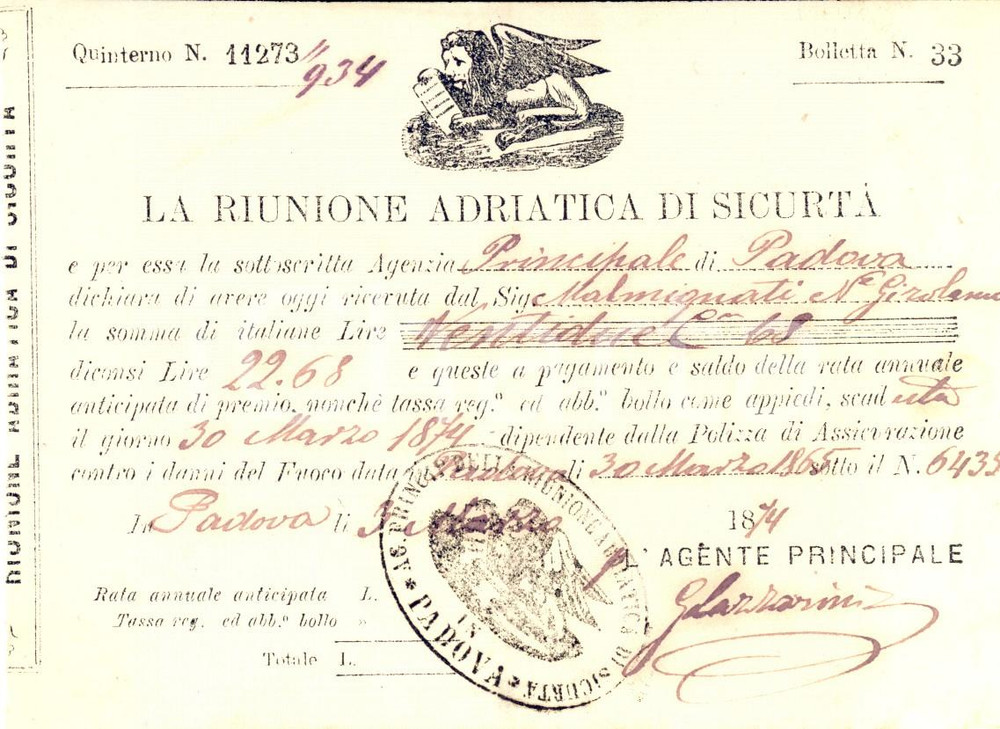 Quinterno N. 11273//934
Bolletta N. 33
LA RIUNIONE ADRIATICA DI SICURTÀ
e per essa la sottoscritta Agenzia Principale di Padova
dichiara di avere oggi ricevuta dal Sig. Malmignati Ne Girolamo
la somma di italiane Lire Ventidue Cn 68
diconsi Lire 22.68 e queste a pagamento e saldo della rata annuale
anticipata di premio, nonchè tassa reg.° ed abb.° bollo come appiedi, scaduta
il giorno 30 Marzo 1874 dipendente dalla Polizza di Assicurazione
contro i danni del Fuoco data Padova li 30 Marzo 1865 sotto il N. 6433
In Padova li 3 Marzo 1874
L'AGENTE PRINCIPALE
GLazzarini
Rata annuale anticipata L.
Tassa reg. ed abb.° bollo »
Totale L.
AG. PRINC. DELLA RIUNIONE ADRIATICA DI SICURTÀ
IN
PADOVA
RIUNIONE ADRIATICA DI SICURTÀ